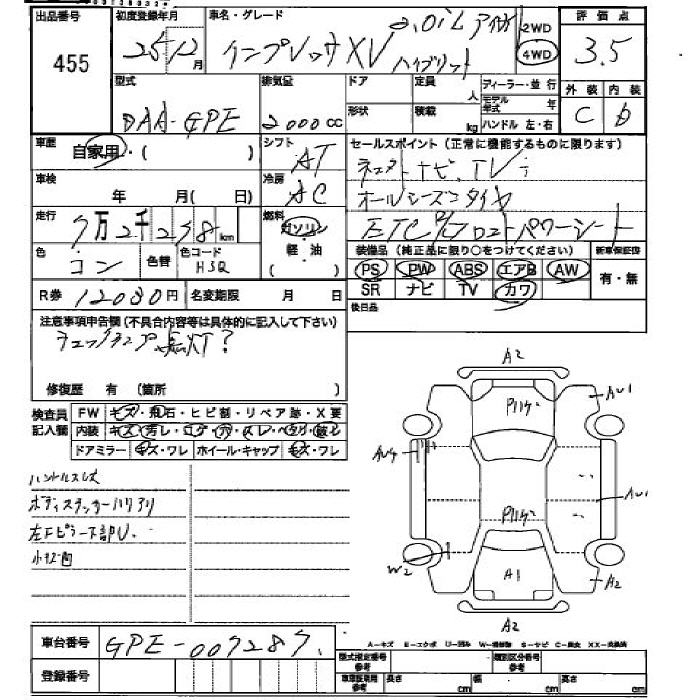 出品番号
455
初度登録年月
25/12月
車名・グレード
インプレッサXV
2.0iL アイサイト
ハイブリット
2WD
4WD
評価点
3.5
外装 内装
C D
型式
DAA-GPE
排気量
2000cc
ドア
形状
定員
人
積載
kg
ディーラー・並行
モデル年式 年
ハンドル 左・右
車歴
自家用・( )
シフト
AT
車検
年 月( 日)
冷房
AC
走行
7万2千238km
燃料
ガソリン
軽・油
( )
色
コン
色替
色コード
H3Q
R券 12080円
名変期限 月 日
セールスポイント(正常に機能するものに限ります)
ナビ、TV
オールシーズンタイヤ
ETC フロントパワーシート
装備品(純正品に限り○をつけてください)
新車保証書
PS PW ABS エアB AW
SR ナビ TV カワ
有・無
後日品
注意事項申告欄(不具合内容等は具体的に記入して下さい)
チェックランプ点灯?
修復歴 有(箇所 )
検査員記入欄
FW キズ・飛石・ヒビ割・リペア跡・X要
内装 キズ・汚レ・コゲ・穴・スレ・ベタリ・破レ
ドアミラー キズ・ワレ ホイール・キャップ キズ・ワレ
ハンドルスレ
ボディステッカーハリアリ
左Fピラー下部U.
小キズ凹
A2
AU1
P11ケ
AU4
AU1
P11ケ
W2
A1
A2
A2
車台番号 GPE-007287
登録番号
A-キズ E-エクボ U-凹み W-補修跡 S-サビ C-腐食 XX-交換済
型式指定番号 参考
類別区分番号 参考
車庫証明用 参考
長さ cm
幅 cm
高さ cm